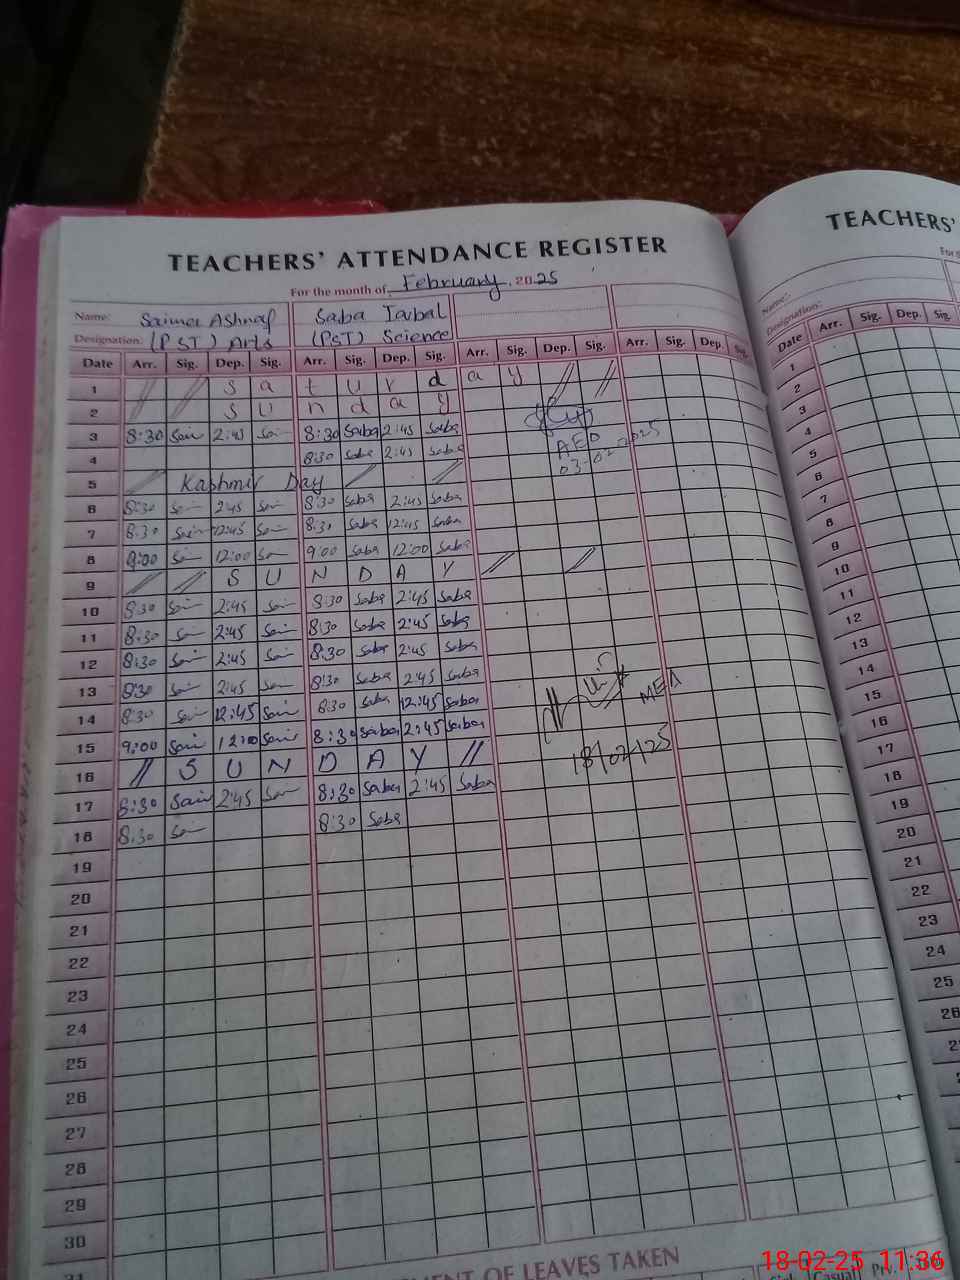 TEACHERS' ATTENDANCE REGISTER
For the month of February. 2025
Name: Saima Ashraf Saba Iqbal
Designation: (PST) Arts (PST) Science
Date Arr. Sig. Dep. Sig. Arr. Sig. Dep. Sig. Arr. Sig. Dep. Sig. Arr. Sig. Dep. Sig.
1 // // S a t u r d a y // //
2 // // S U n d a y
3 8:30 Sai 2:45 Sai 8:30 Saba 2:45 Saba
4 8:30 Saba 2:45 Saba
AEO
03-02-2025
5 // Kashmir Day // //
6 8:30 Sai 2:45 Sai 8:30 Saba 2:45 Saba
7 8:30 Sai 12:45 Sai 8:30 Saba 12:45 Saba
8 9:00 Sai 12:00 Sai 9:00 Saba 12:00 Saba
9 // // S U N D A Y // //
10 8:30 Sai 2:45 Sai 8:30 Saba 2:45 Saba
11 8:30 Sai 2:45 Sai 8:30 Saba 2:45 Saba
12 8:30 Sai 2:45 Sai 8:30 Saba 2:45 Saba
13 8:30 Sai 2:45 Sai 8:30 Saba 2:45 Saba
14 8:30 Sai 12:45 Sai 8:30 Saba 12:45 Saba
MEA
15 9:00 Sai 12:00 Sai 8:30 Saba 2:45 Saba
18/02/25
16 // S U N D A Y //
17 8:30 Sai 2:45 Sai 8:30 Saba 2:45 Saba
18 8:30 Sai 8:30 Saba
19
20
21
22
23
24
25
26
27
28
29
30
31
OF LEAVES TAKEN
TEACHERS'
Name:
Designation:
Date Arr. Sig. Dep. Sig.
1
2
3
4
5
6
7
8
9
10
11
12
13
14
15
16
17
18
19
20
21
22
23
24
25
26
18-02-25 11:36